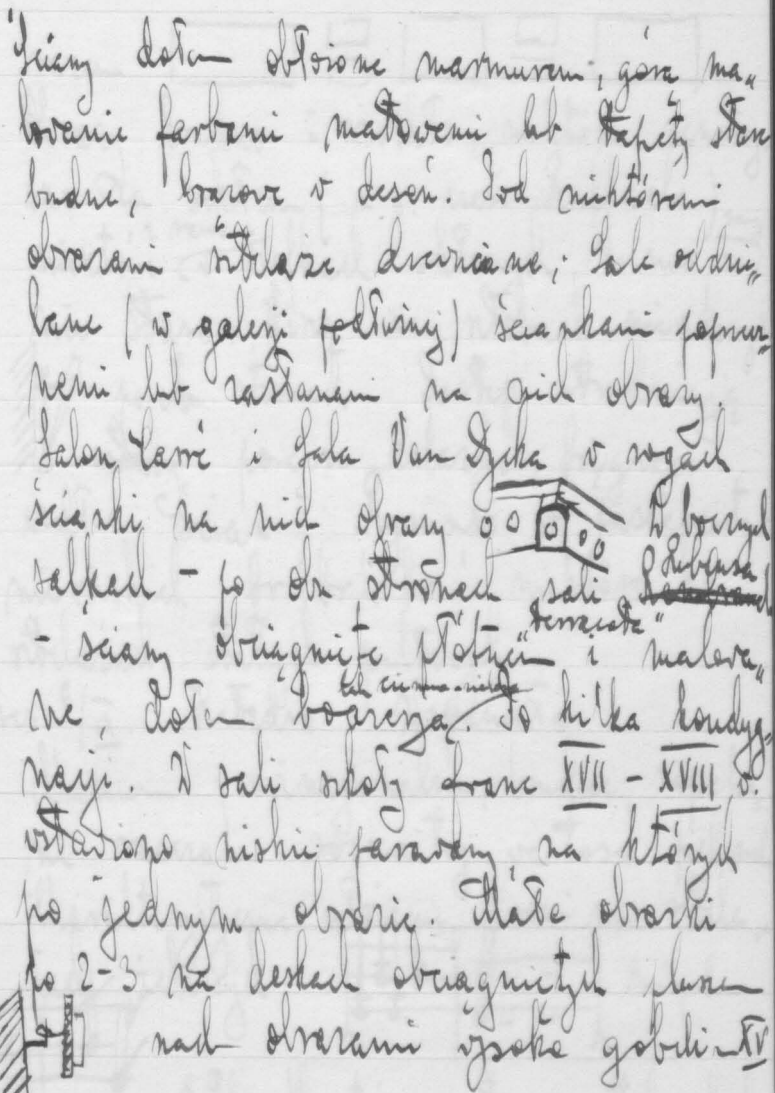 Ściany dołem obłożone marmurem, górą ma„
lowanie farbami matowemi lub tapety
brudne, brązowe w deseń. Pod niektóremi
obrazami sztelaże drewniane; Sale oddzie„
lane (w galerji podłużnej) ściankami poprzecz„
nemi lub zasłanami na nich obrazy.
Salon Carré i Sala Van Dycka w rogach
ścianki na nich obrazy W bocznych
salkach – po obu stronach sali Rubensa
– ściany obciągnięte płótnem i malowa„
"terracota"
ne, dołem boazerja. Po kilka kondyg„
nacji. W sali szkoły franc XVII – XVIII w.
wstawiono niskie parawany na których
po jednym obrazie. Małe obrazki
po 2–3 na deskach obciągniętych pluszem
nad obrazami wysoko gobelin XV